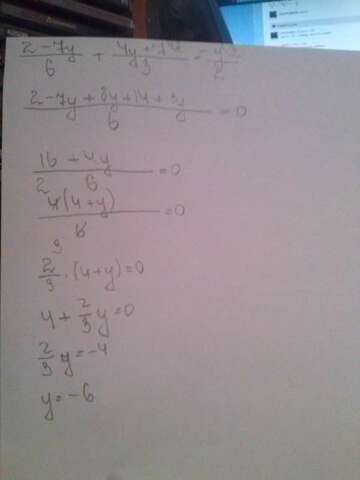 (2-7y)/6 + (4y+7)/3 = -y/2
(2-7y+8y+14+3y)/6 = 0
(16+4y)/6 = 0
4(4+y)/6 = 0
2/3 · (4+y) = 0
4 + 2/3 y = 0
2/3 y = -4
y = -6